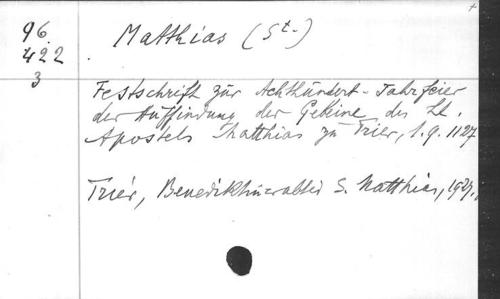 96.
422
3
Matthias (St.)
Festschrift zur Achthundert-Jahrfeier
der Auffindung der Gebeine des hl.
Apostels Matthias zu Trier, 1.9.1127
Trier, Benediktinerabtei S. Matthias, 1927.